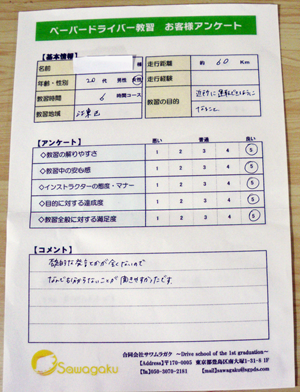 ペーパードライバー教習 お客様アンケート
【基本情報】
名前 様 走行距離 約 60 Km
年齢・性別 20 代 男性 女性 走行経験
教習時間 6 時間コース 教習の目的
教習地域 江東区 なること
【アンケート】
悪い 普通 良い
◇教習の解りやすさ 1 2 3 4 5
◇教習中の安心感 1 2 3 4 5
◇インストラクターの態度・マナー 1 2 3 4 5
◇目的に対する達成度 1 2 3 4 5
◇教習全般に対する満足度 1 2 3 4 5
【コメント】
なのでもわからないことが 聞きやすかったです。
Sawagaku
合同会社サワムラガク ～Drive school of the 1st graduation～
【Address】〒170-0005 東京都豊島区南大塚1-31-8 1F
【Tel】050-3070-2181 【Mail】sawagaku@sgyds.com